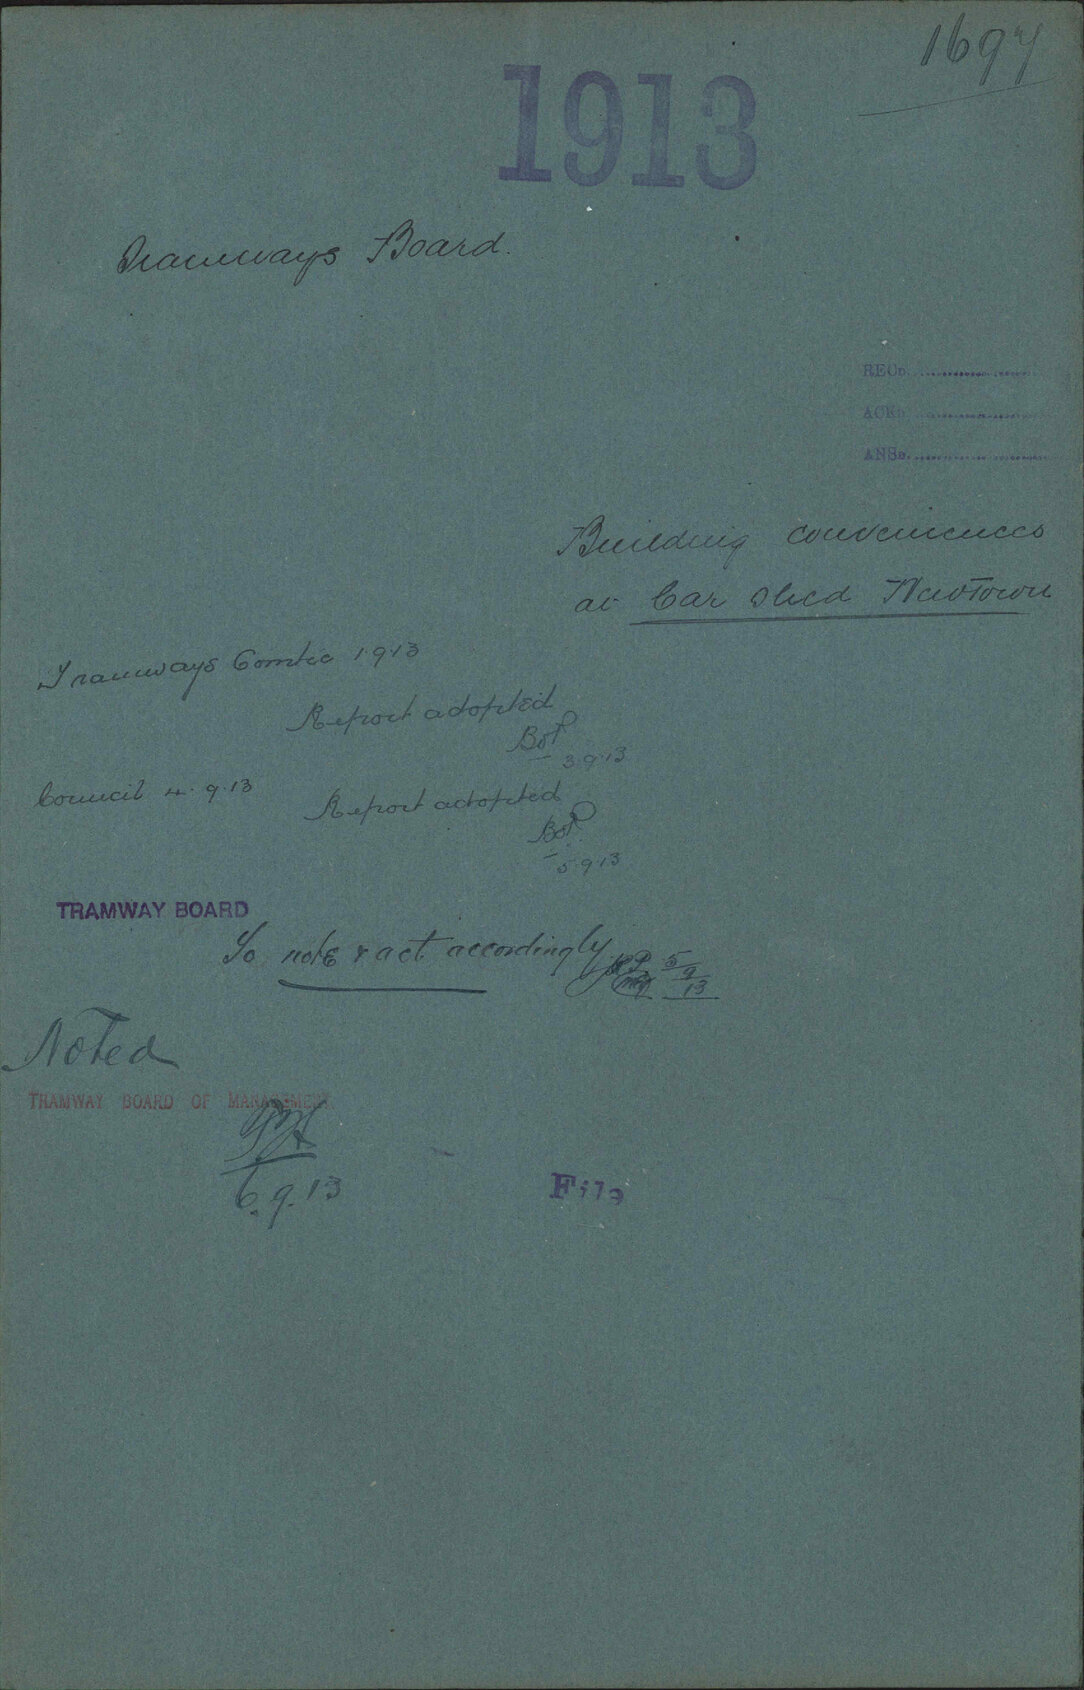 1697
1913
Tramways Board.
RECD.
ACKD.
ANSD.
Building conveniences
at Car Shed Newtown
Tramways Comtee 1.9.13
Report adopted
3.9.13
Council 4.9.13
Report adopted
5.9.13
TRAMWAY BOARD
To note & act accordingly
5/9/13
Noted
TRAMWAY BOARD OF MANAGEMENT.
6.9.13
File